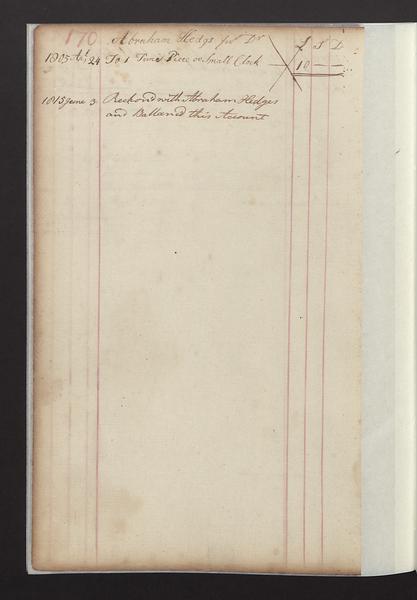 170 Abraham Hedgs Jur Dr £ S D
1805 24 To 1 Time Piece or Small Clock 10 — —
1815 June 3 Reckond with Abraham Hedges
and Ballanced this Account